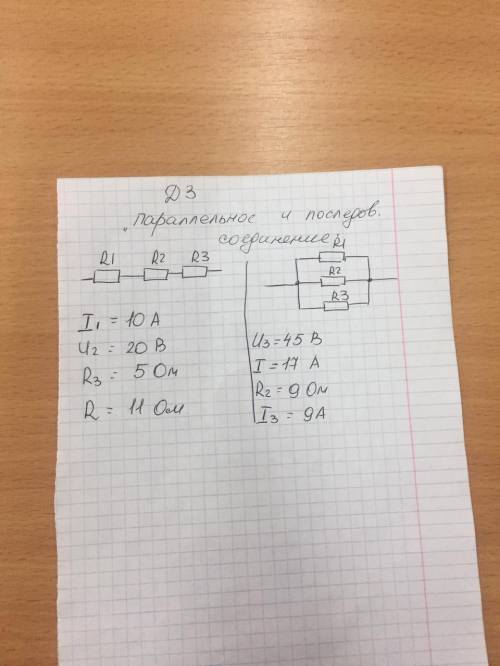 ДЗ
„Параллельное и последов.
соединение„
R1 R2 R3
I₁ = 10 А
U₂ = 20 В
R₃ = 5 Ом
R = 11 Ом
R1
R2
R3
U₃ = 45 В
I = 17 А
R₂ = 9 Ом
I₃ = 9А